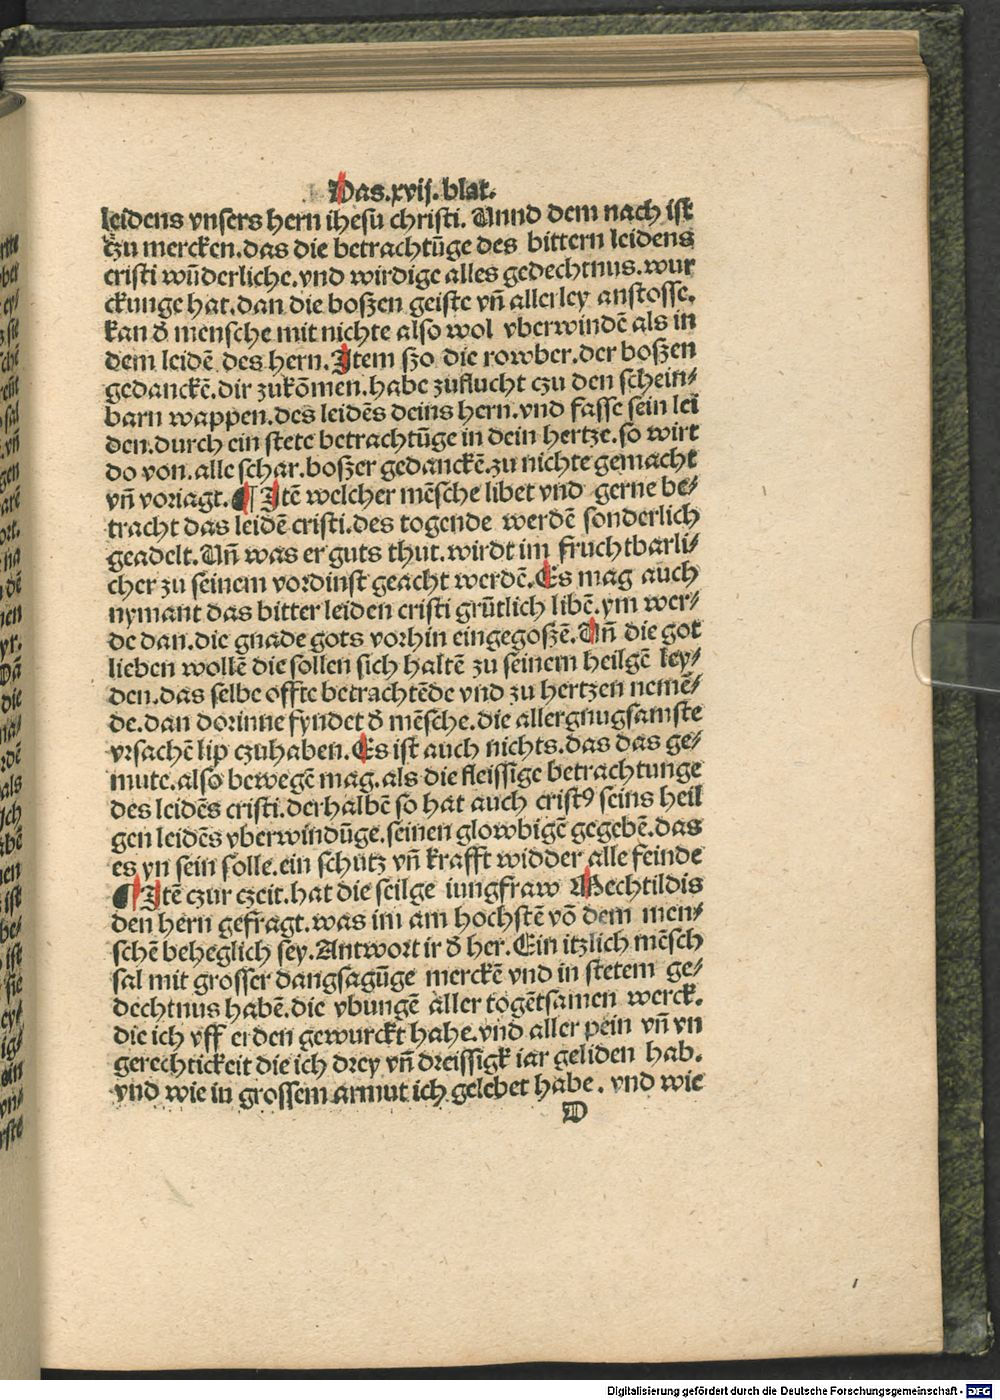 Das.xvij.blat.
leidens vnsers hern ihesu christi. Unnd dem nach ist
Czu mercken.das die betrachtūge des bittern leidens
cristi wūderliche.vnd wirdige alles gedechtnus.wur
ckunge hat.dan die boßen geiste vn̄ allerley anstosse.
kan d̄ mensche mit nichte also wol vberwindē als in
dem leidē des hern.Item ßo die rowber.der boßen
gedanckē.dir zukōmen.habe zuflucht czu den schein⸗
barn wappen.des leidēs deins hern.vnd fasse sein lei
den.durch ein stete betrachtūge in dein hertze.so wirt
do von.alle schar.boßer gedanckē.zu nichte gemacht
vn̄ voriagt.¶ Itē welcher mēsche libet vnd gerne be⸗
tracht das leidē cristi.des togende werdē sonderlich
geadelt.Un̄ was er guts thut.wirdt im fruchtbarli⸗
cher zu seinem vordinst geacht werdē.Es mag auch
nymant das bitter leiden cristi grūtlich libē.ym wer⸗
de dan.die gnade gots vorhin eingegoßē.Un̄ die got
lieben wollē die sollen sich haltē zu seinem heilgē ley⸗
den.das selbe offte betrachtēde vnd zu hertzen nemē⸗
de.dan dorinne fyndet d̄ mēsche.die allergnugsamste
vrsachē lip czuhaben.Es ist auch nichts.das das ge⸗
mute.also bewegē mag.als die fleissige betrachtunge
des leidēs cristi.derhalbē so hat auch cristꝰ seins heil
gen leidēs vberwindūge.seinen glowbigē gegebē.das
es yn sein solle.ein schutz vn̄ krafft widder alle feinde
¶ Itē czur czeit.hat die seilge iungfraw Mechtildis
den hern gefragt.was im am hochstē vō dem men⸗
schē beheglich sey.Antwort ir d̄ her.Ein itzlich mēsch
sal mit grosser dangsagūge merckē vnd in stetem ge⸗
dechtnus habē.die vbungē aller togētsamen werck.
die ich vff erden gewurckt habe.vnd aller pein vn̄ vn
gerechtickeit die ich drey vn̄ dreissigk iar geliden hab.
vnd wie in grossem armut ich gelebet habe. vnd wie
D
Digitalisierung gefördert durch die Deutsche Forschungsgemeinschaft - DFG